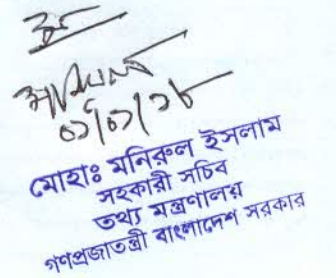 ০১/০১/১৮
মোহাঃ মনিরুল ইসলাম
সহকারী সচিব
তথ্য মন্ত্রণালয়
গণপ্রজাতন্ত্রী বাংলাদেশ সরকার